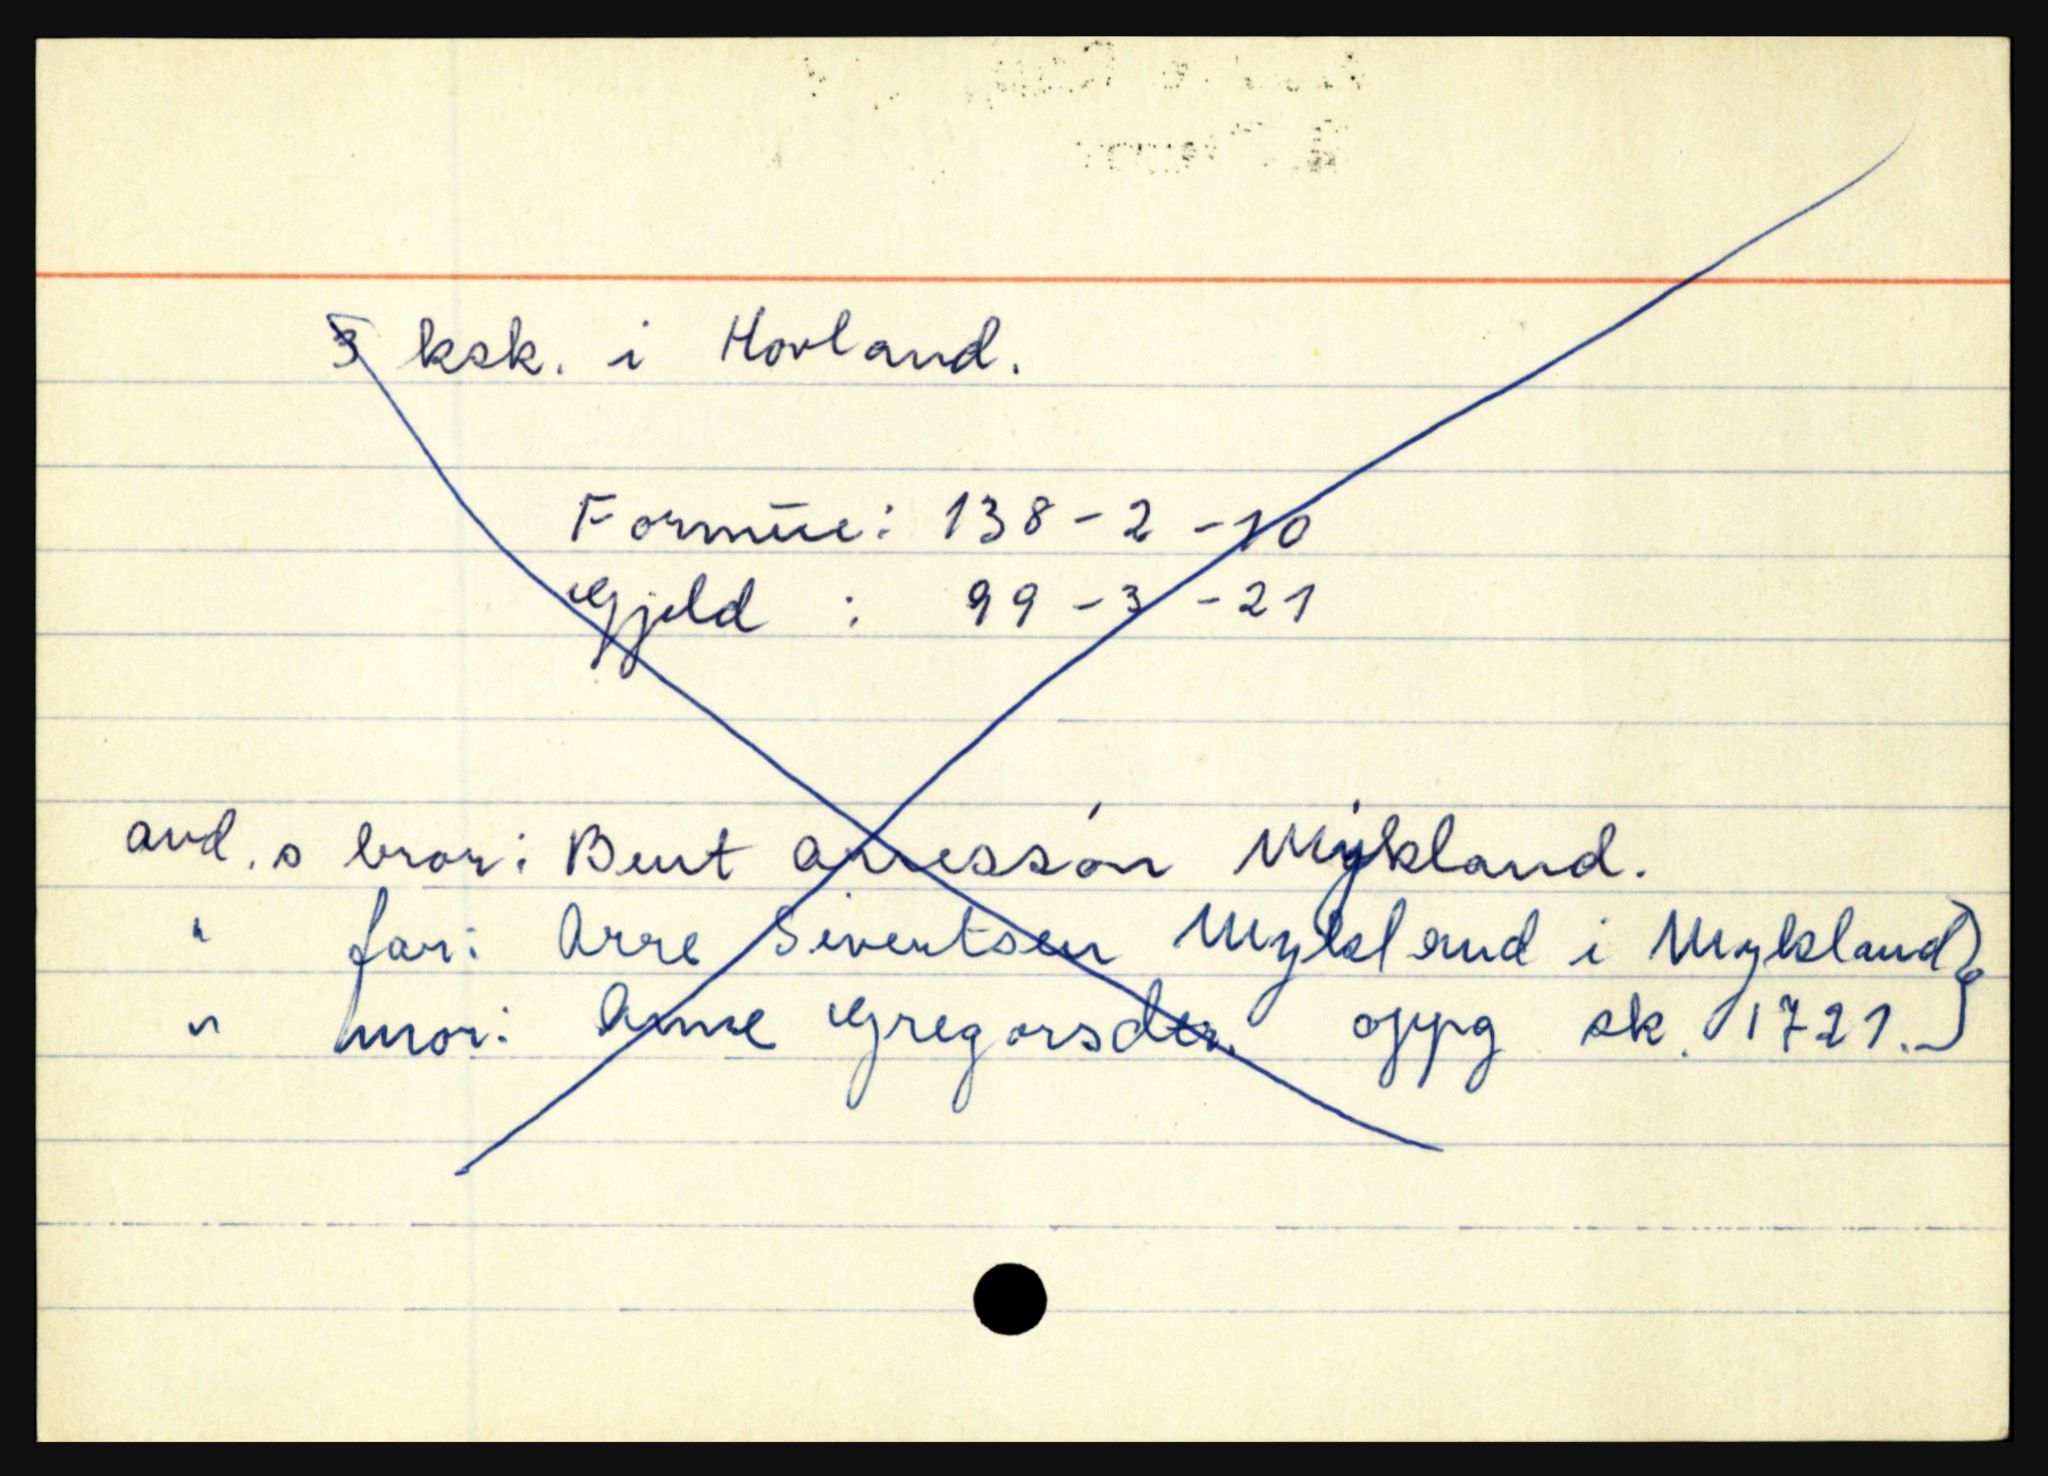 3 ksk. i Hovland.
Formue: 138 - 2 - 10
Gjeld : 99 - 3 - 21
avd. s bror: Bent Arresson Mykland.
" far: Arre Sivertsen Mykland i Mykland }
" mor: Anne Gregorsdtr. oppg sk. 1721. }